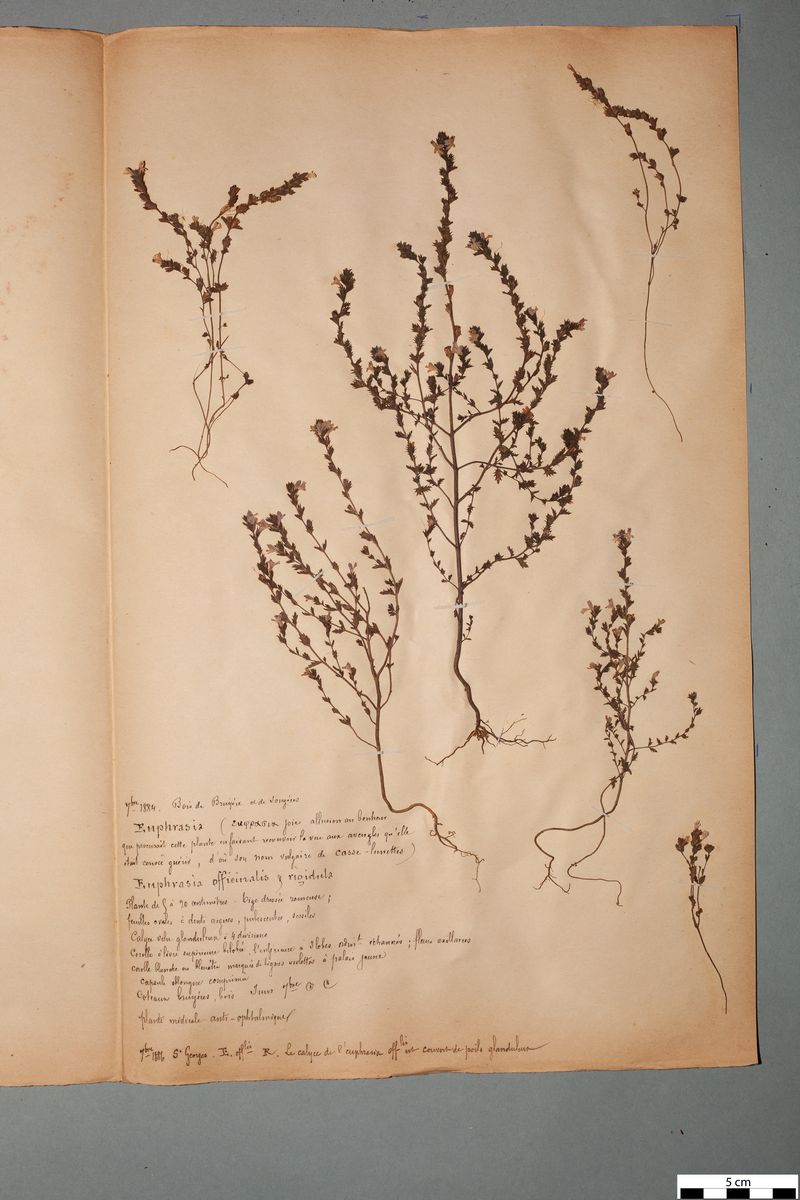 7bre 1884. Bois de Bruyère et de
Euphrasia (ευφρασια joie allusion au bonheur
que procurait cette plante en faisant recouvrir la vue aux aveugles qu'elle
était censée guérir, d'où son nom vulgaire de casse-lunettes)
Euphrasia officinalis rigidula
Plante de à 20 centimètres - tige dressée rameuse ;
feuilles ovales à dents aigues, pubescentes, sessiles
Calyce velu glanduleux à 4 divisions
Corolle à lèvre supérieure bilobée, l'inférieure à 3 lobes échancrés ; fleurs axillaires
corolle blanche ou bleuâtre marquée de lignes violettes à palais jaune
capsule oblongue comprimée
Coteaux bruyères, bois Juin 7bre
plante médicale anti-ophtalmique
7bre 1886 St Georges. E. offlis R. Le calyce de l'euphrasia offlis est couvert de poils glanduleux
5 cm